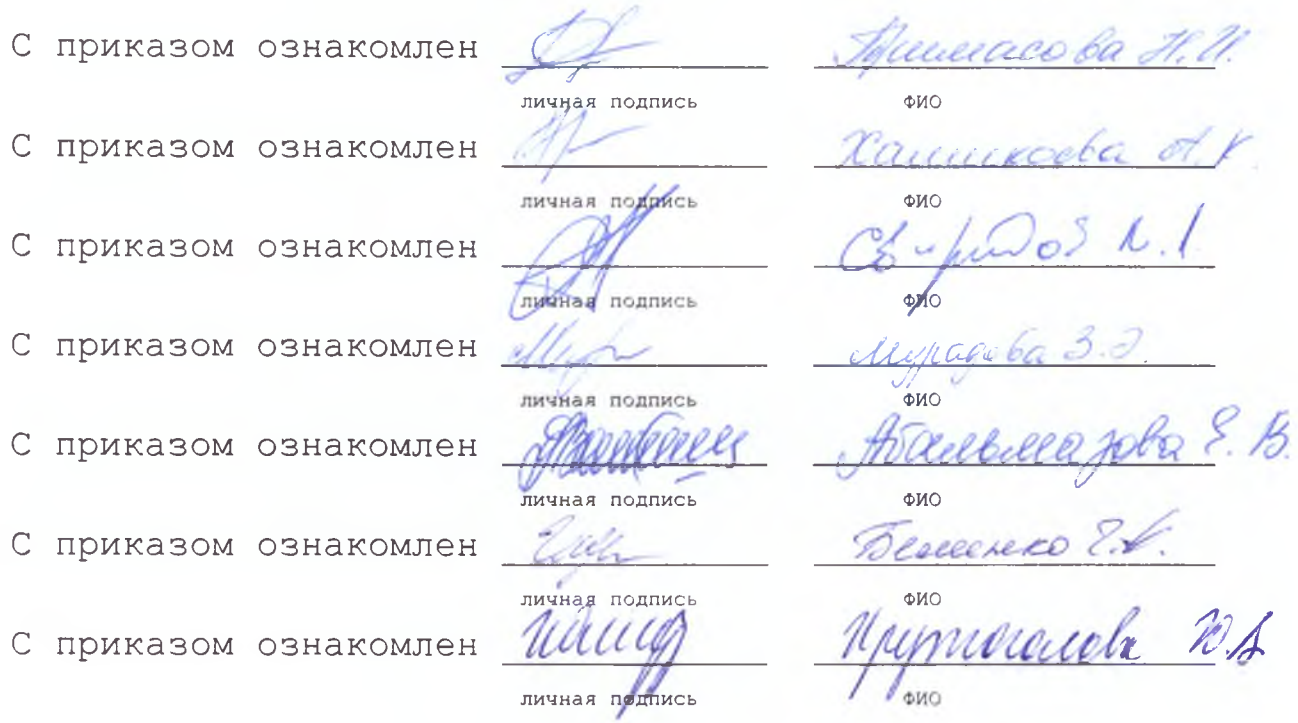 С приказом ознакомлен
личная подпись ФИО
С приказом ознакомлен
личная подпись ФИО
С приказом ознакомлен Свиридов
личная подпись ФИО
С приказом ознакомлен Мурадова З.Э.
личная подпись ФИО
С приказом ознакомлен Абальмазова Е. В.
личная подпись ФИО
С приказом ознакомлен
личная подпись ФИО
С приказом ознакомлен Крутоголова Ю.А
личная подпись ФИО